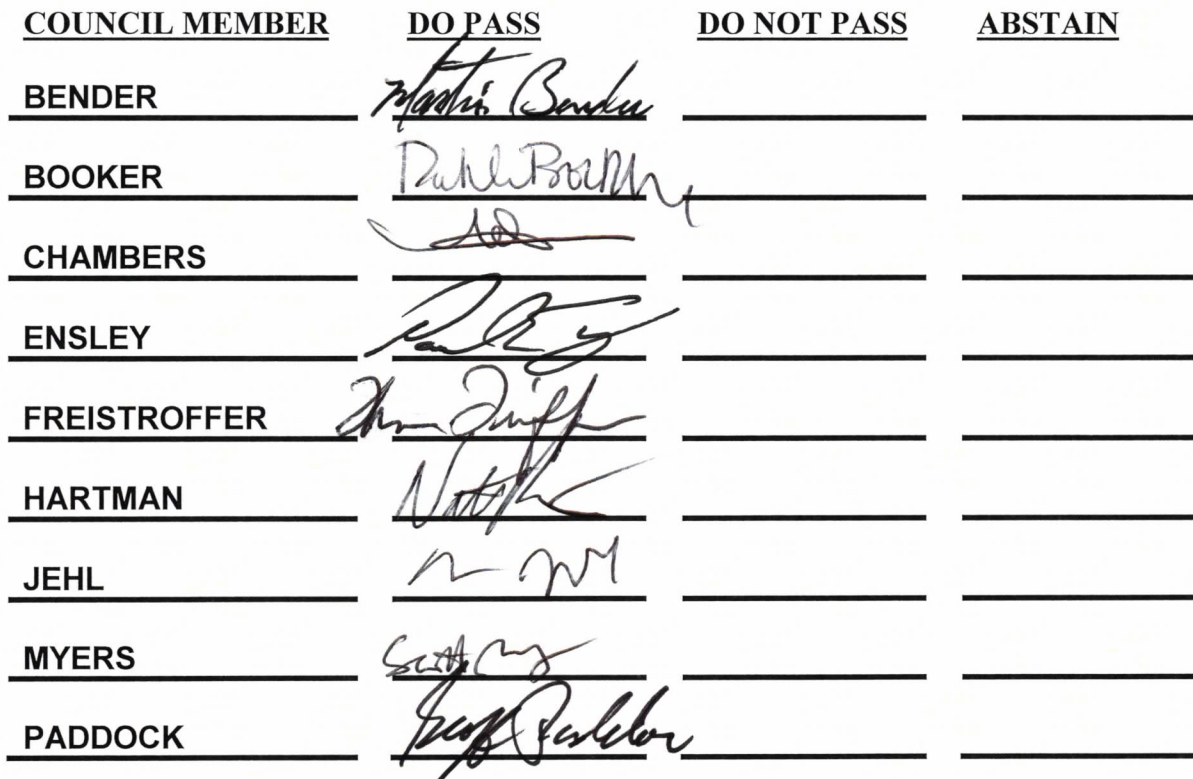 COUNCIL MEMBER DO PASS DO NOT PASS ABSTAIN
BENDER Martin Bender
BOOKER
CHAMBERS
ENSLEY
FREISTROFFER
HARTMAN
JEHL
MYERS Scott
PADDOCK Geoff Paddock